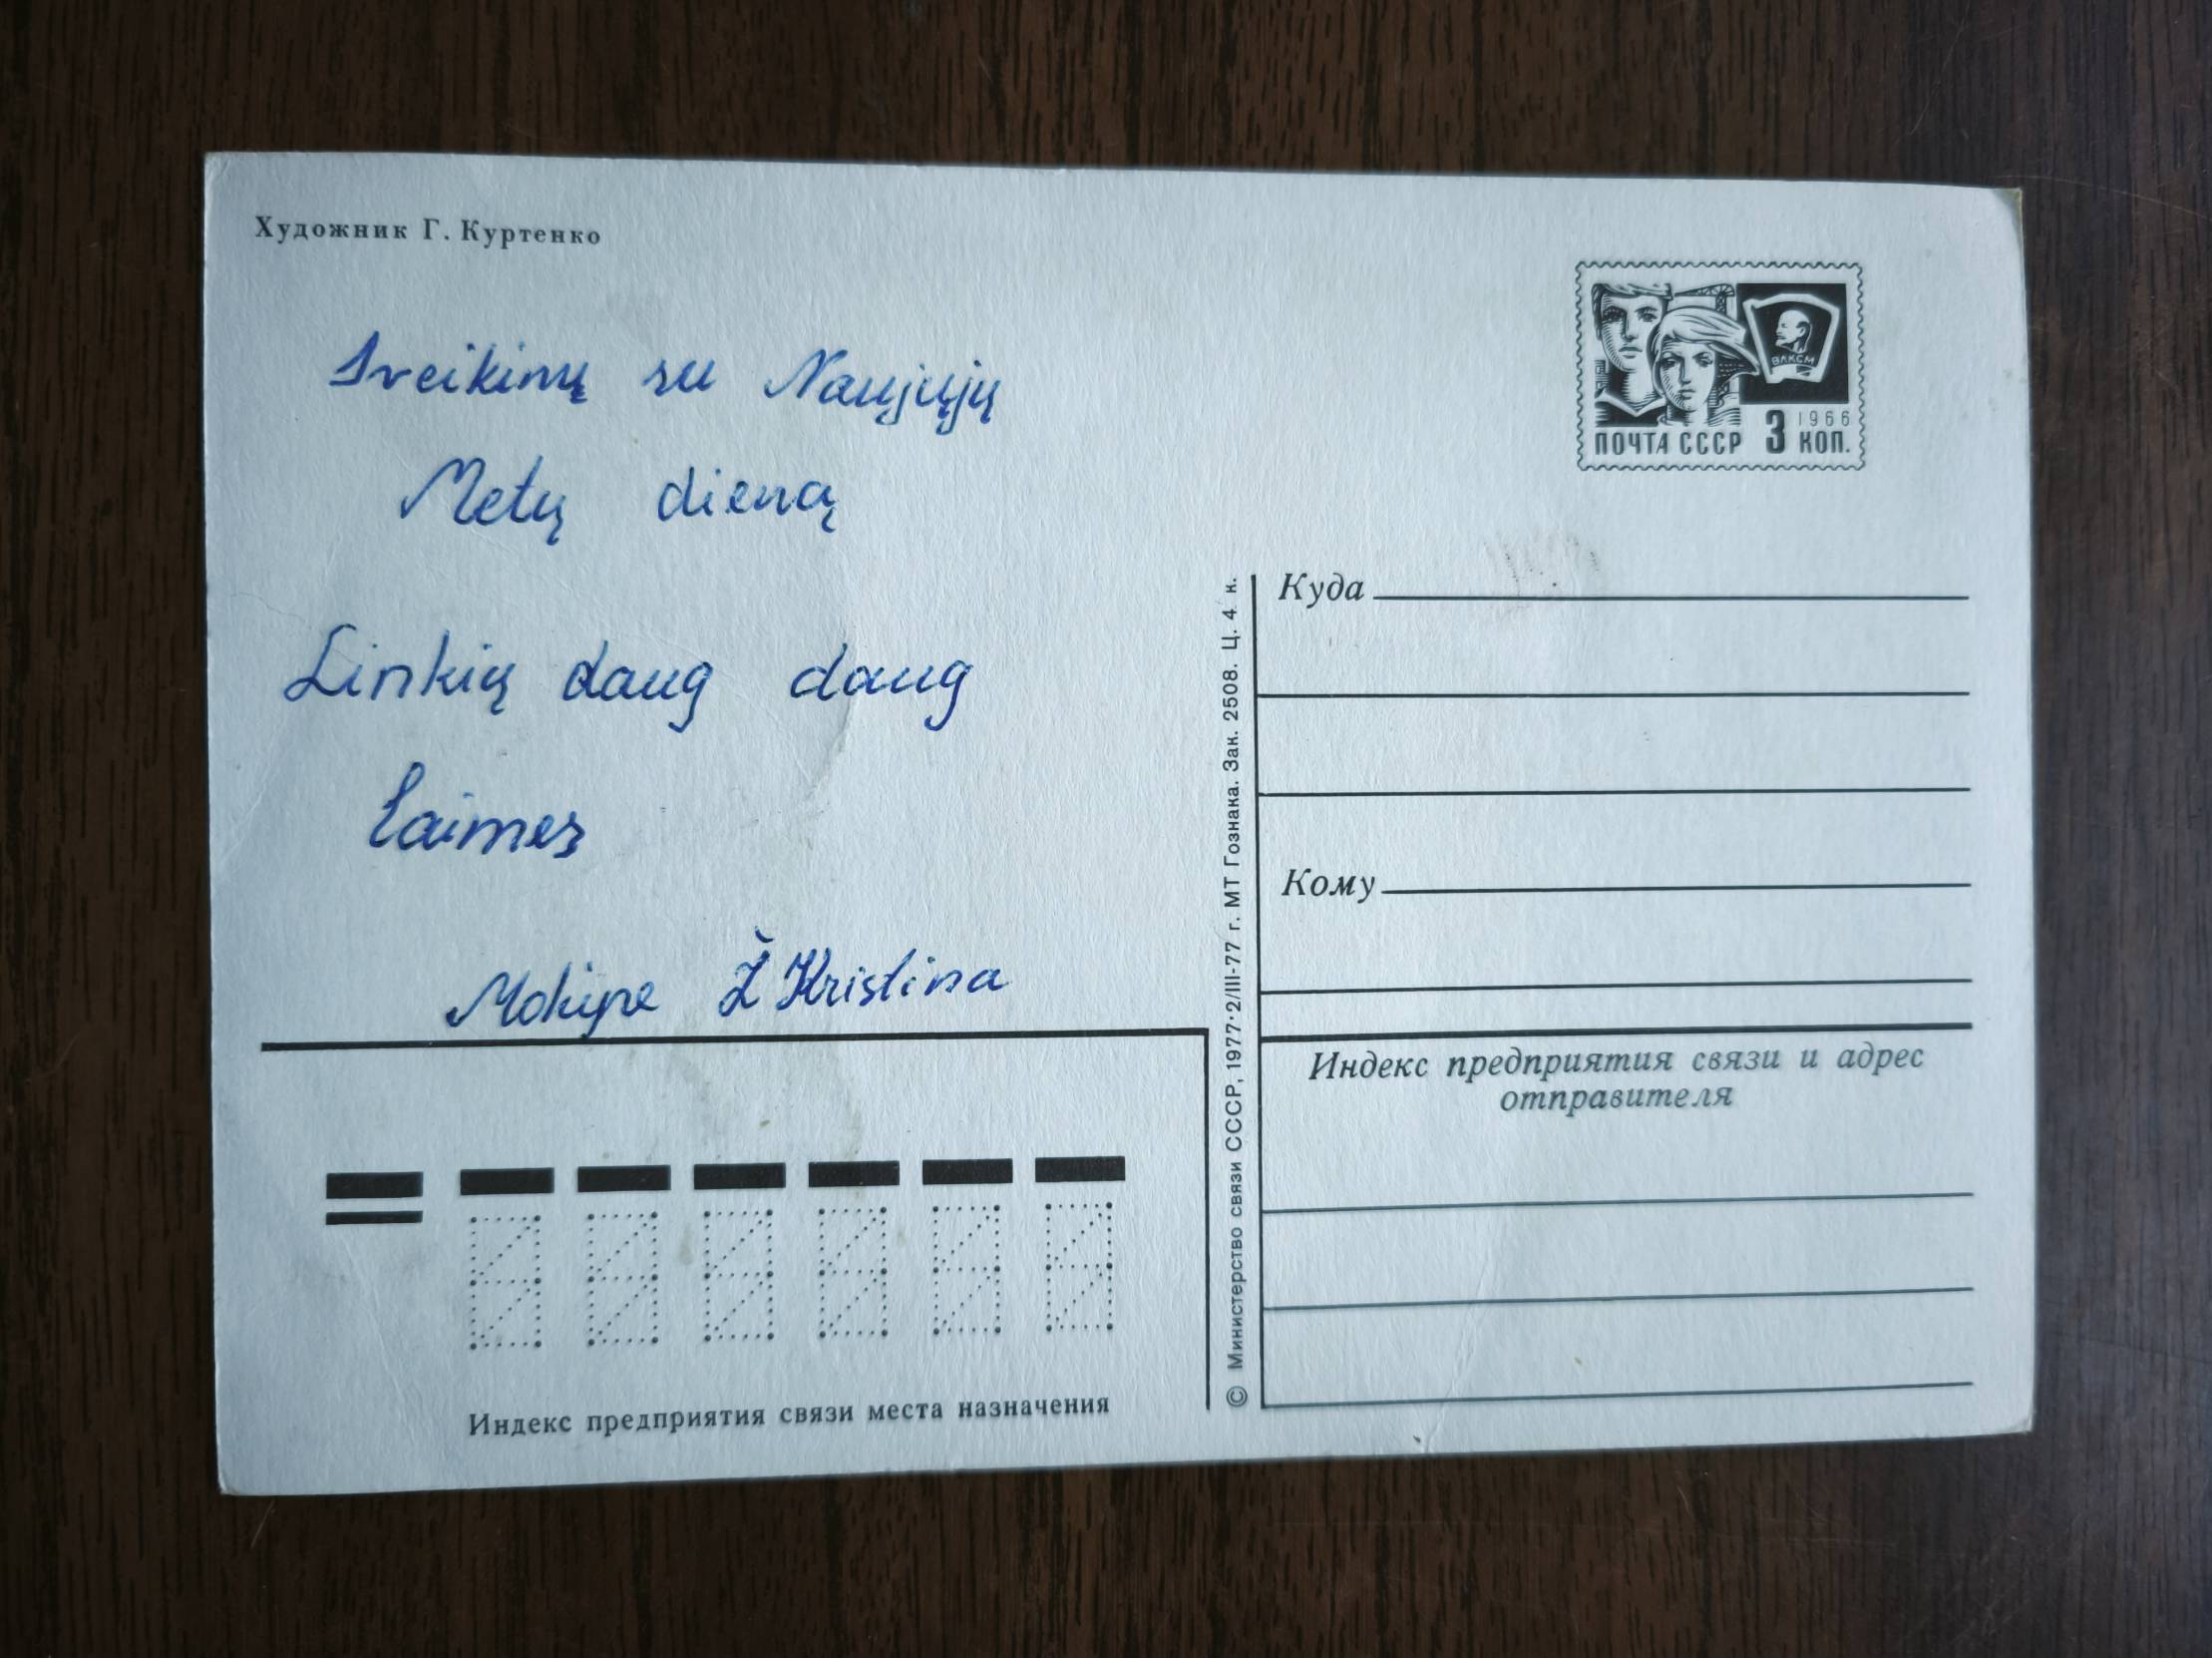 Художник Г. Куртенко
Sveikinų su Naujųjų
Metų dieną
Linkių daug daug
laimes
Mokyne Ž Kristina
ВЛКСМ
1966
ПОЧТА СССР 3 КОП.
Куда
Кому
Индекс предприятия связи и адрес
отправителя
© Министерство связи СССР, 1977·2/III-77 г. МТ Гознака. Зак. 2508. Ц. 4 к.
Индекс предприятия связи места назначения